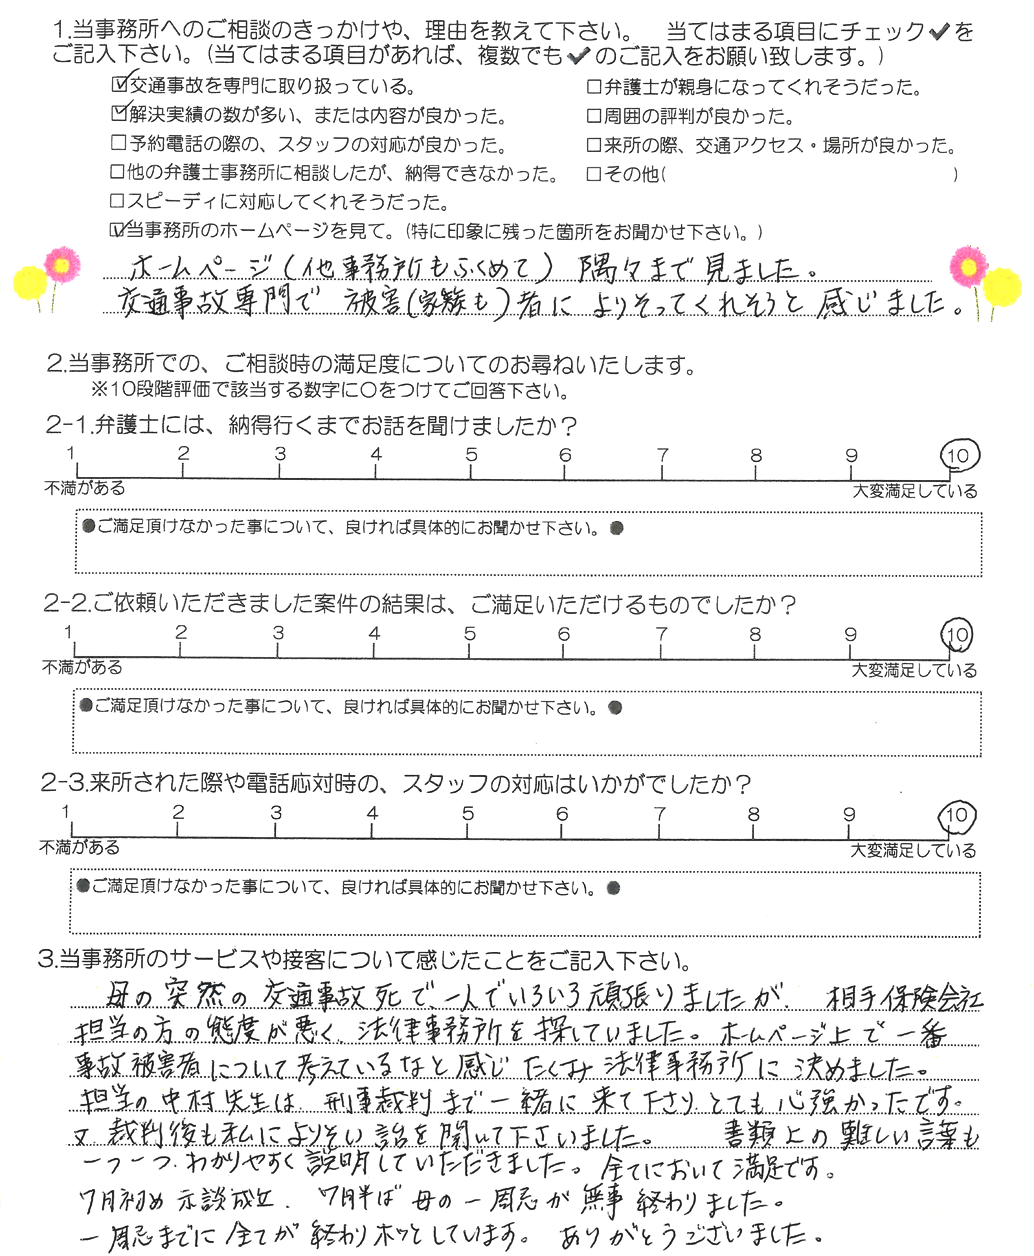 1.当事務所へのご相談のきっかけや、理由を教えて下さい。 当てはまる項目にチェック✔を
ご記入下さい。(当てはまる項目があれば、複数でも✔のご記入をお願い致します。)
☑交通事故を専門に取り扱っている。 □弁護士が親身になってくれそうだった。
☑解決実績の数が多い、または内容が良かった。 □周囲の評判が良かった。
□予約電話の際の、スタッフの対応が良かった。 □来所の際、交通アクセス・場所が良かった。
□他の弁護士事務所に相談したが、納得できなかった。 □その他( )
□スピーディに対応してくれそうだった。
☑当事務所のホームページを見て。(特に印象に残った箇所をお聞かせ下さい。)
ホームページ(他事務所もふくめて) 隅々まで見ました。
交通事故専門で 被害(家族も)者に よりそってくれそうと感じました。
2.当事務所での、ご相談時の満足度についてのお尋ねいたします。
※10段階評価で該当する数字に○をつけてご回答下さい。
2-1.弁護士には、納得行くまでお話を聞けましたか?
1 2 3 4 5 6 7 8 9 10
不満がある 大変満足している
●ご満足頂けなかった事について、良ければ具体的にお聞かせ下さい。●
2-2.ご依頼いただきました案件の結果は、ご満足いただけるものでしたか?
1 2 3 4 5 6 7 8 9 10
不満がある 大変満足している
●ご満足頂けなかった事について、良ければ具体的にお聞かせ下さい。●
2-3.来所された際や電話応対時の、スタッフの対応はいかがでしたか?
1 2 3 4 5 6 7 8 9 10
不満がある 大変満足している
●ご満足頂けなかった事について、良ければ具体的にお聞かせ下さい。●
3.当事務所のサービスや接客について感じたことをご記入下さい。
母の突然の交通事故死で、一人でいろいろ頑張りましたが、相手保険会社
担当の方の態度が悪く、法律事務所を探していました。ホームページ上で一番
事故被害者について考えているなと感じ たくみ法律事務所に決めました。
担当の中村先生は、刑事裁判まで一緒に来て下さり、とても心強かったです。
又、裁判後も私によりそい話を聞いて下さいました。 書類上の難しい言葉も
一つ一つ、わかりやすく説明していただきました。全てにおいて満足です。
7月初め示談成立、7月半ば母の一周忌が無事終わりました。
一周忌までに全てが終わりホッとしています。 ありがとうございました。